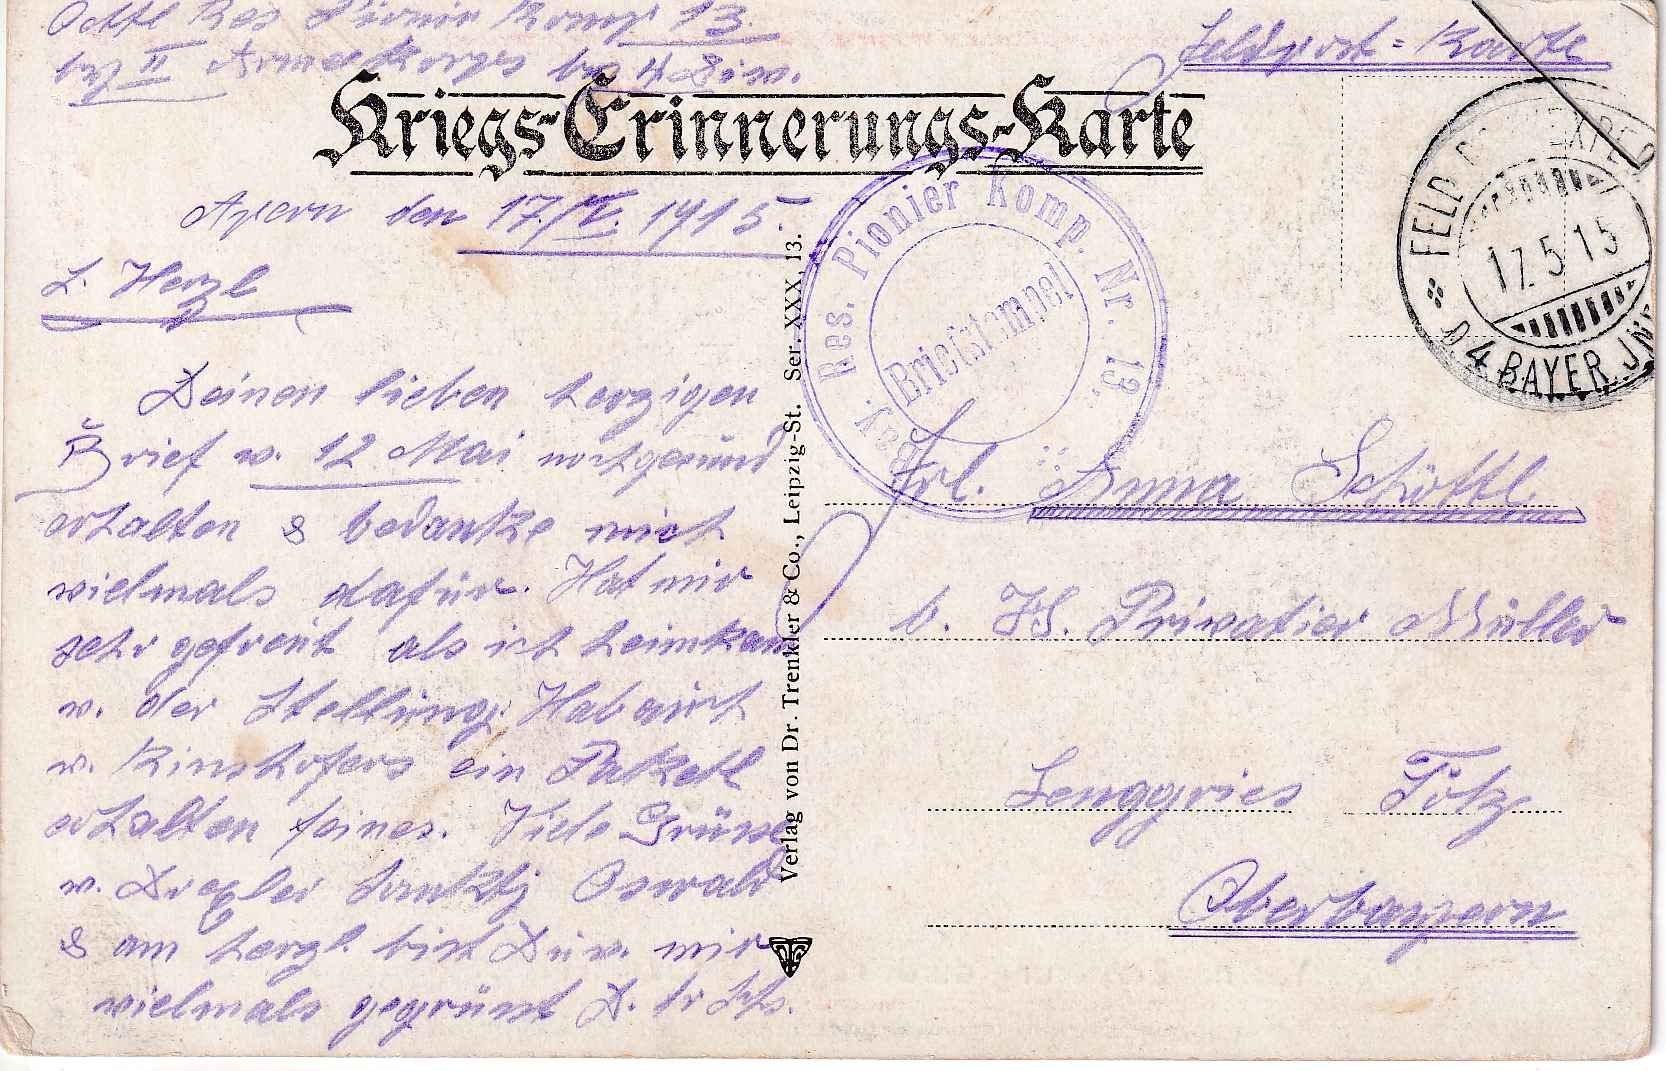 Res Pionier Komp 13
II Armeekorps b. 4 Div.
Feldpost=Karte
Kriegs-Erinnerungs-Karte
FELD POSTEXPED.
17.5.15
D 4 BAYER. JNF
Bay. Res. Pionier Komp. Nr. 13.
Briefstempel
den 17./V. 1915.
L. Herzl
Deinen lieben herzigen
Brief v. 12 Mai
erhalten & bedanke mich
vielmals dafür. Hat mir
sehr gefreut als ich heimkam
v. der Stellung. Hab auch
v. Rinshofers ein Paketl
erhalten feines. Viele Grüsse
v. Drexler Oswald
& am herzl. bist Du v. mir
vielmals gegrüsst D.
Verlag von Dr. Trenkler & Co., Leipzig-St. Ser. XXX, 13.
Frl. Anna Schöttl
b. H. Privatier Müller
Lenggries Tölz
Oberbayern